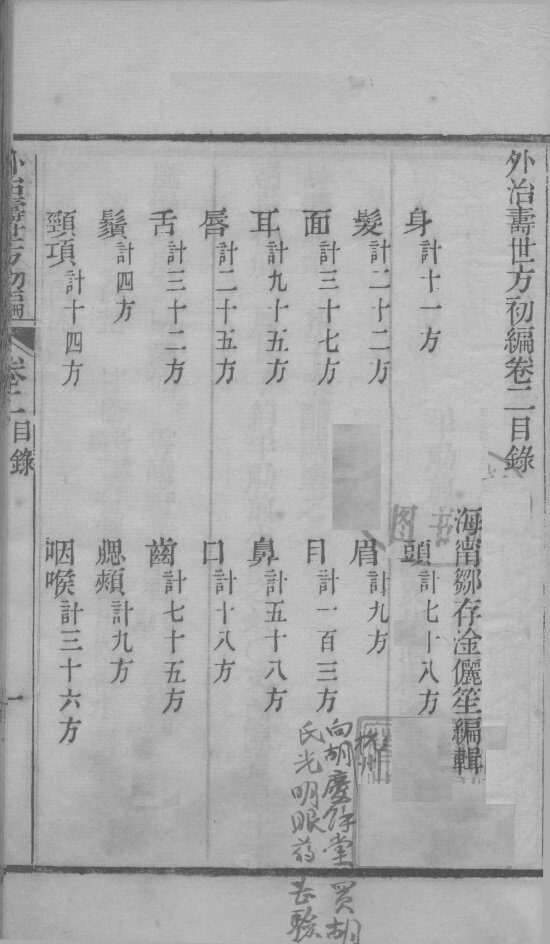 外治壽世方初編卷二目錄
海甯鄒存淦儷笙編輯
身計十一方
頭計七十八方
髮計二十二方
眉計九方
面計三十七方
目計一百三方
耳計九十五方
鼻計五十八方
唇計二十五方
口計十八方
舌計三十二方
齒計七十五方
鬚計四方
腮頰計九方
頸項計十四方
咽喉計三十六方
杭州
向胡慶餘堂買胡
氏光明眼药
图 书
外治壽世方初編 卷二目錄 一